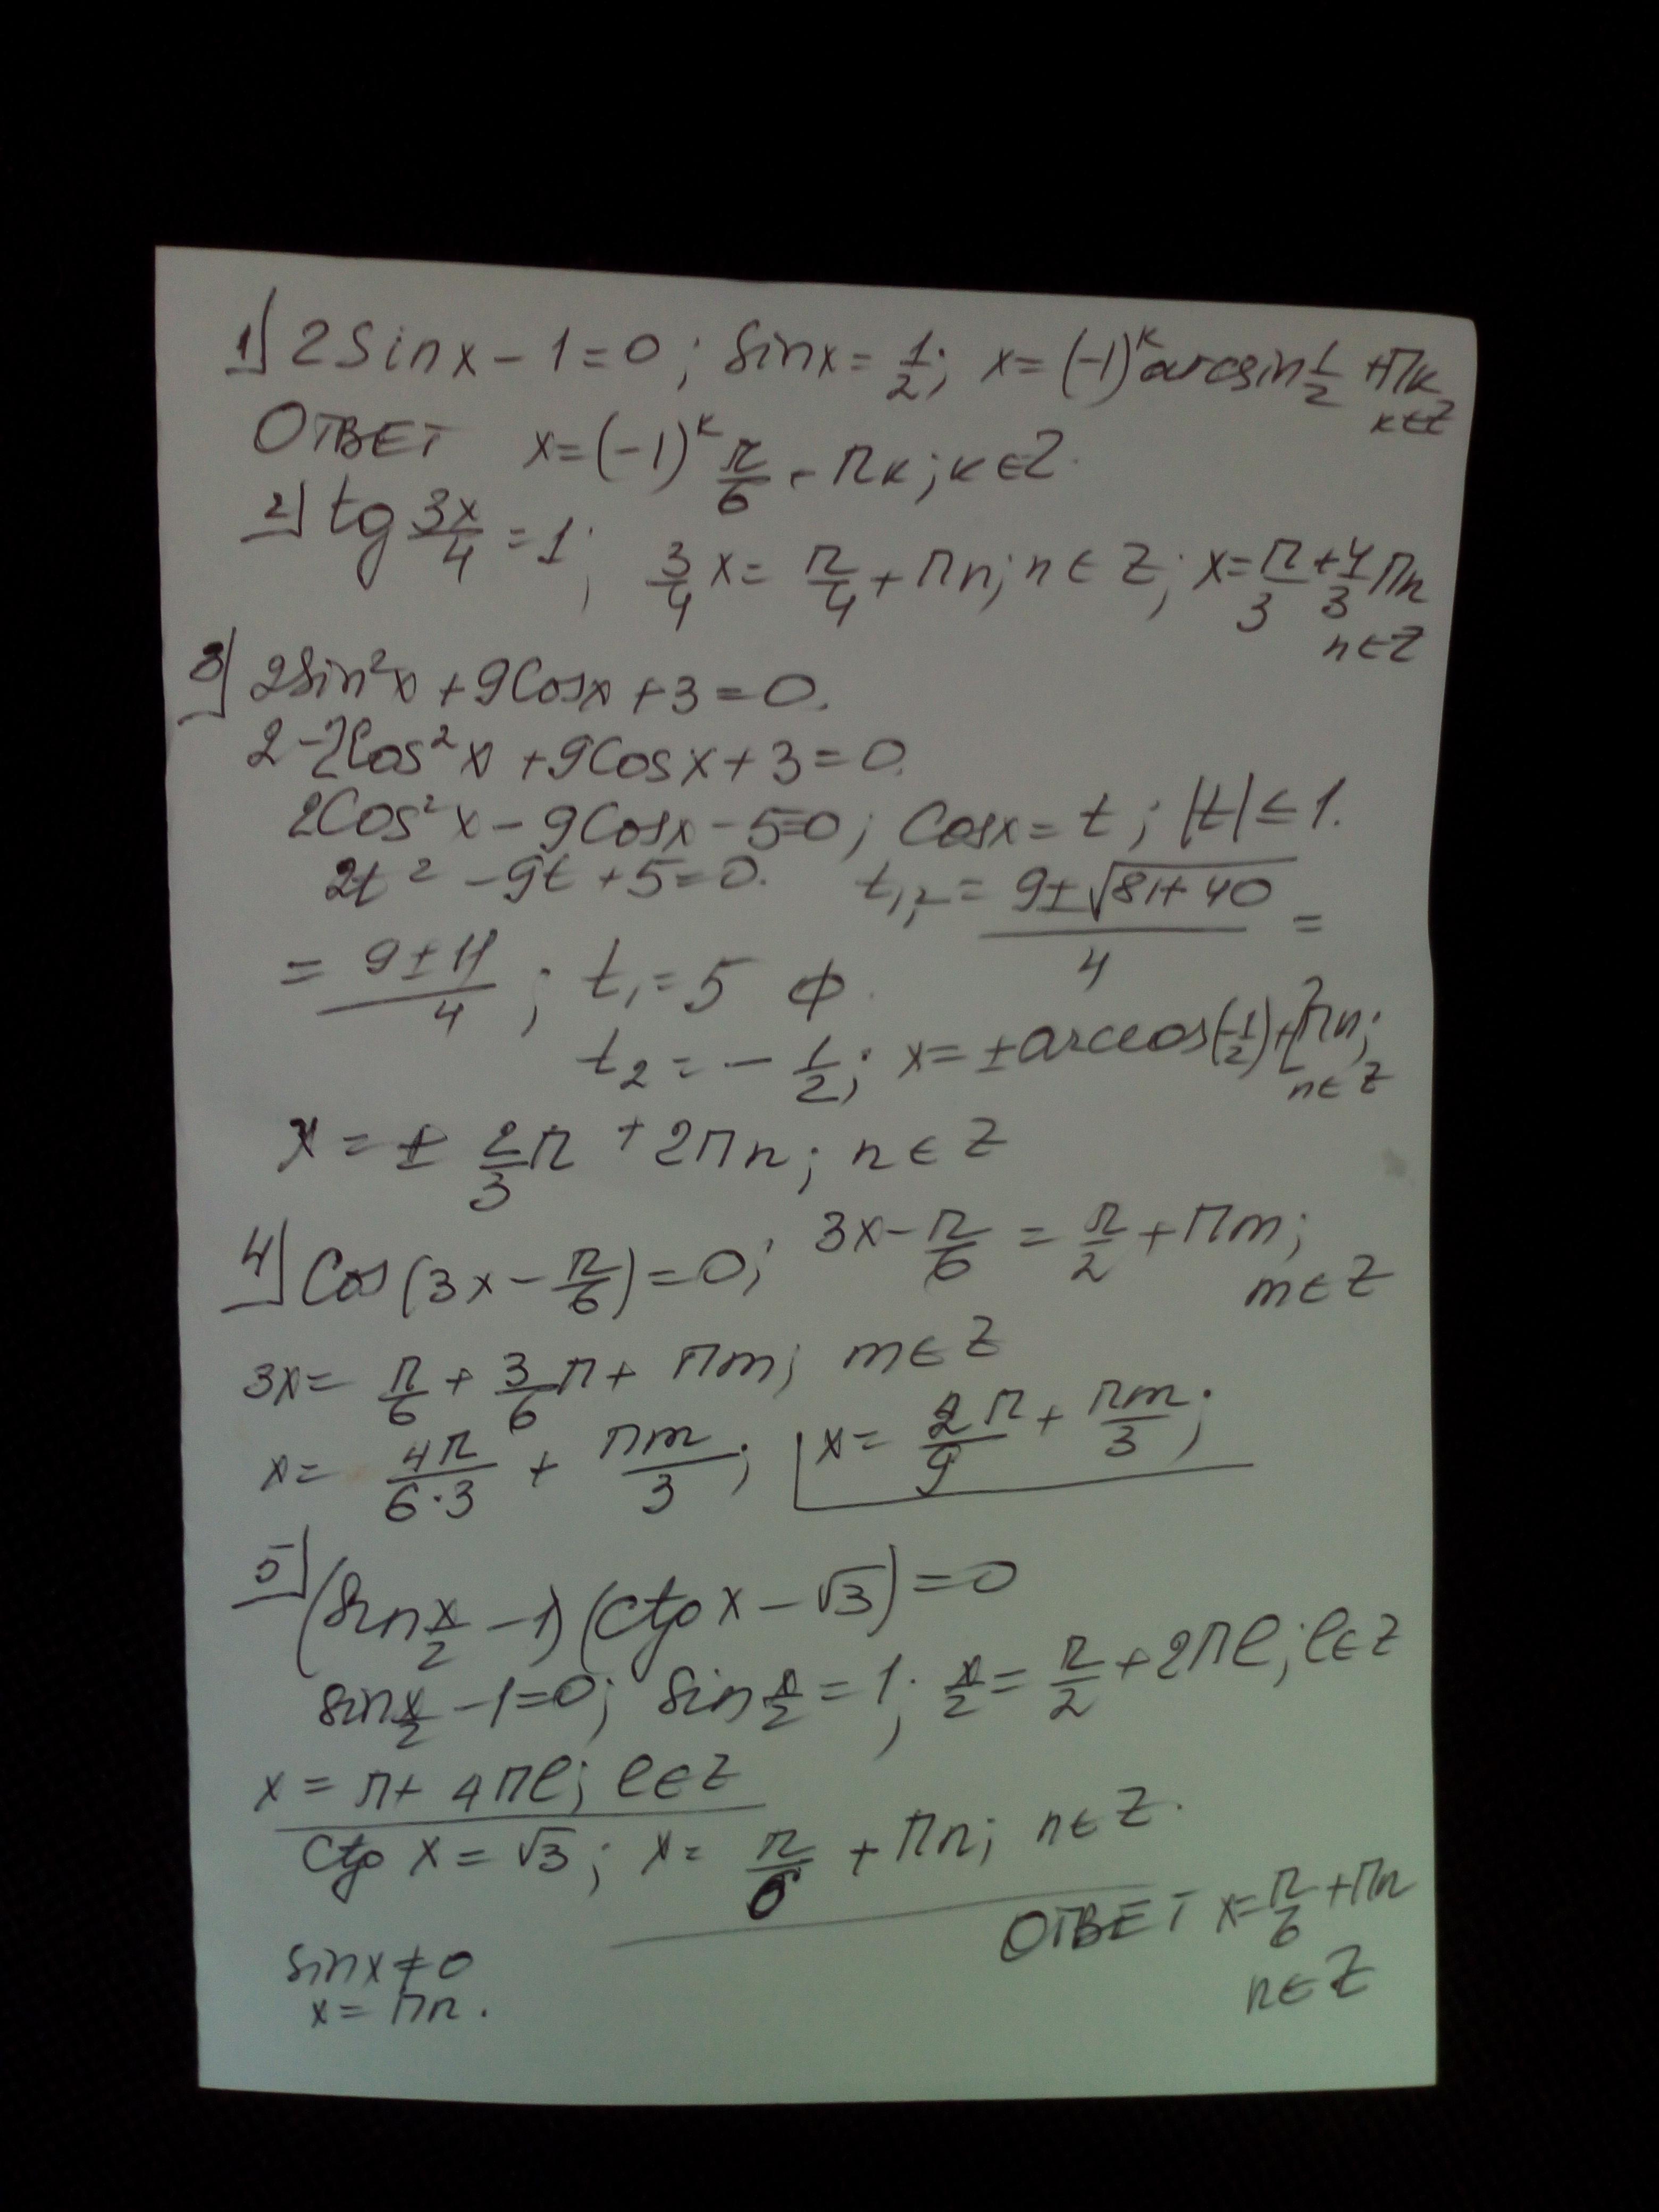 1) 2Sinx - 1 = 0; Sinx = 1/2; x = (-1)^k arcsin 1/2 + Πk, k∈Z
ОТВЕТ x = (-1)^k π/6 - Πk; k∈Z.
2) tg 3x/4 = 1; 3/4 x = π/4 + Πn; n∈Z; x = π/3 + 4/3 Πn n∈Z
3) 2Sin²x + 9Cosx + 3 = 0.
2 - 2Cos²x + 9Cosx + 3 = 0.
2Cos²x - 9Cosx - 5 = 0; Cosx = t; |t| ≤ 1.
2t² - 9t + 5 = 0. t₁,₂ = (9 ± √(81 + 40))/4 =
= (9 ± 11)/4; t₁ = 5 ф.
t₂ = - 1/2; x = ± arccos(-1/2) + 2Πn; n∈Z
x = ± 2/3 π + 2Πn; n∈Z
4) Cos(3x - π/6) = 0; 3x - π/6 = π/2 + Πm; m∈Z
3x = π/6 + 3/6 π + Πm; m∈Z
x = 4π/(6·3) + Πm/3; x = 2π/9 + πm/3;
5) (Sin x/2 - 1)(ctg x - √3) = 0
sin x/2 - 1 = 0; Sin x/2 = 1; x/2 = π/2 + 2Πl; l∈Z
x = π + 4Πl; l∈Z
ctg x = √3; x = π/6 + Πn; n∈Z.
ОТВЕТ x = π/6 + Πn n∈Z
Sinx ≠ 0
x = Πn.